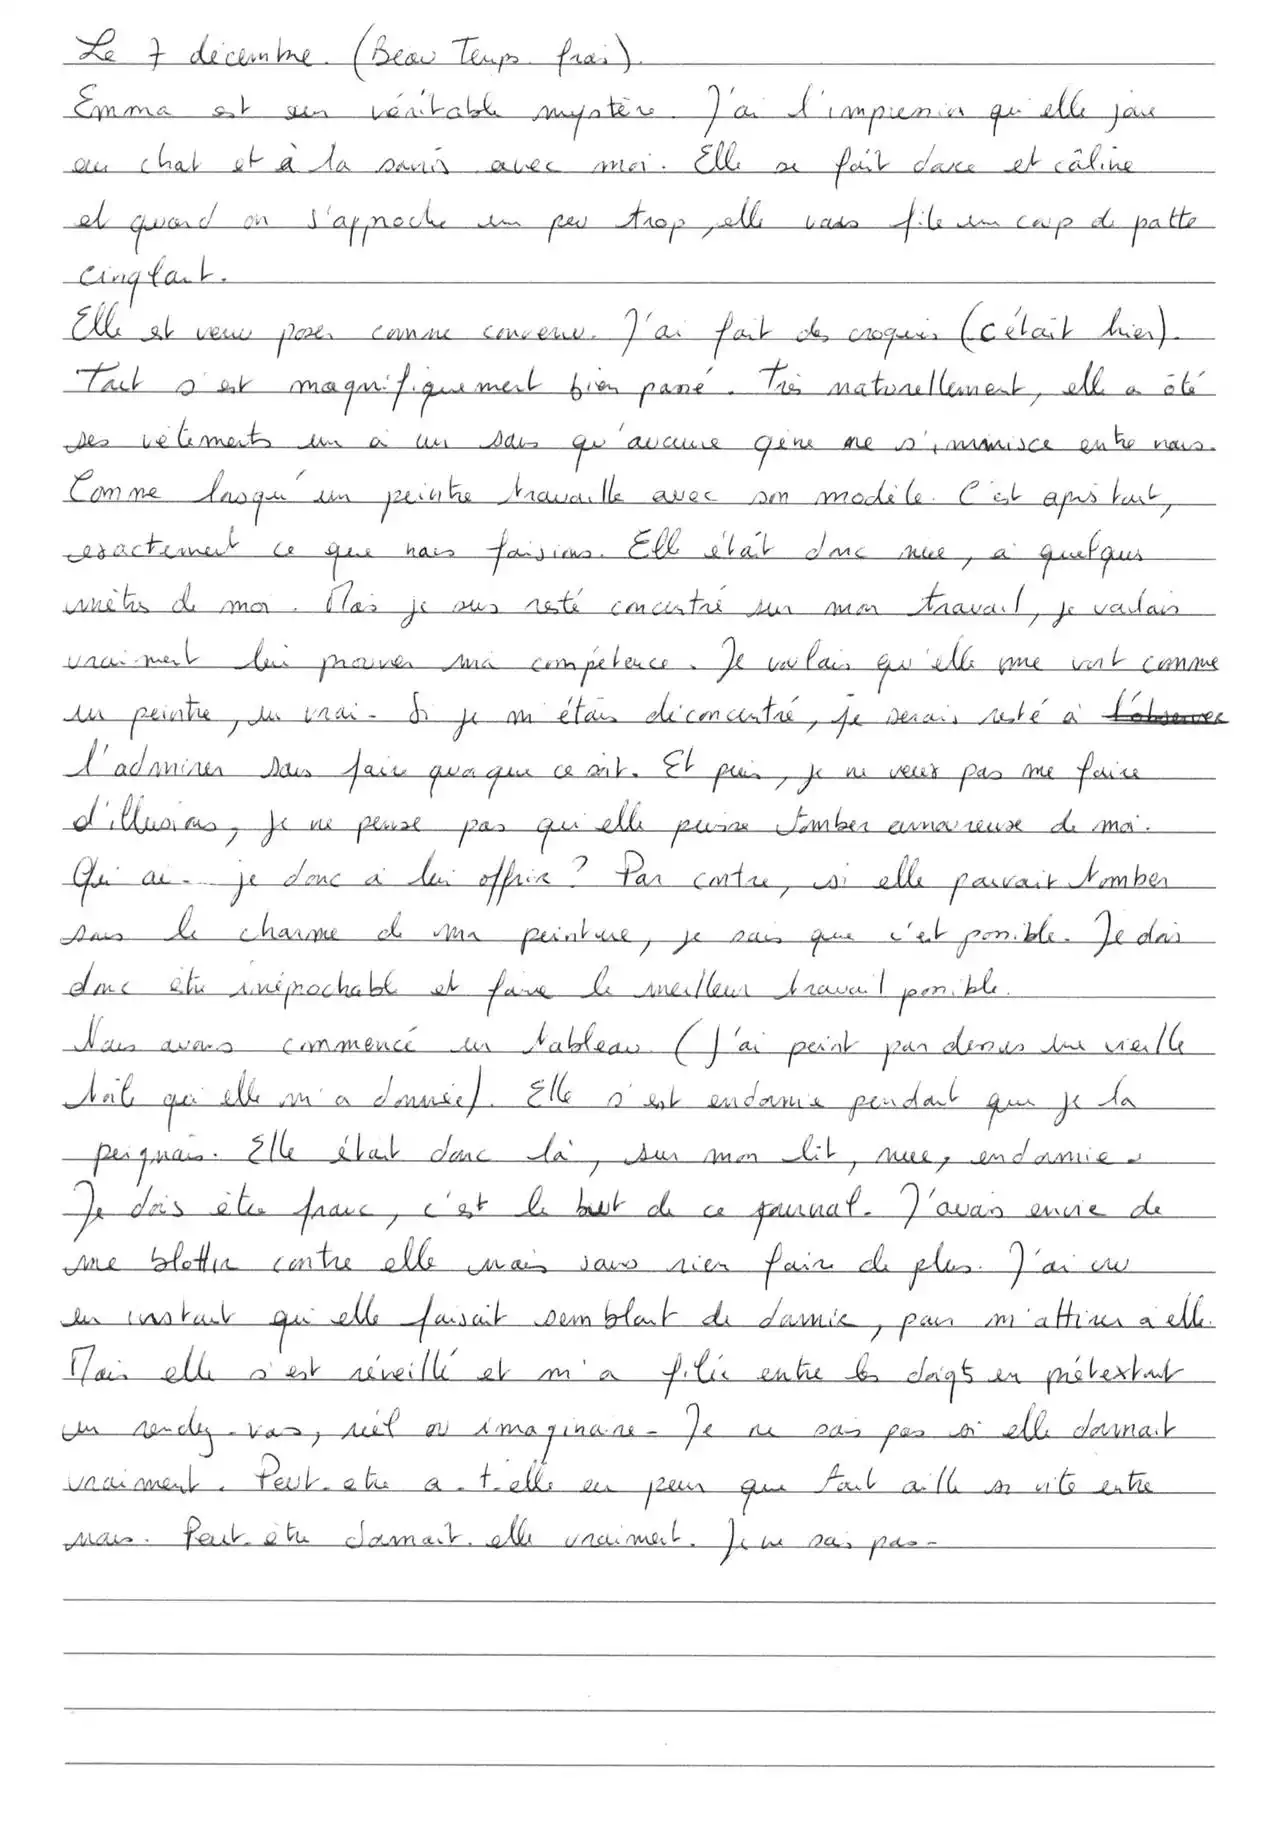 Le 7 décembre. (Beau Temps. frais).
Emma est un véritable mystère. J'ai l'impression qu'elle joue
au chat et à la souris avec moi. Elle se fait douce et câline
et quand on s'approche un peu trop, elle vous file un coup de patte
cinglant.
Elle est venue poser comme convenu. J'ai fait des croquis (c'était hier).
Tout s'est magnifiquement bien passé. Très naturellement, elle a ôté
ses vêtements un à un sans qu'aucune gêne ne s'imnisce entre nous.
Comme lorsqu'un peintre travaille avec son modèle. C'est après tout,
exactement ce que nous faisions. Elle était donc nue, à quelques
mètres de moi. Mais je suis resté concentré sur mon travail, je voulais
vraiment lui prouver ma compétence. Je voulais qu'elle me voit comme
un peintre, un vrai. Si je m'étais déconcentré, je serais resté à l'observer
l'admirer sans faire quoique ce soit. Et puis, je ne veux pas me faire
d'illusions, je ne pense pas qu'elle puisse tomber amoureuse de moi.
Qu'ai-je donc à lui offrir ? Par contre, si elle pouvait tomber
sous le charme de ma peinture, je sais que c'est possible. Je dois
donc être irréprochable et faire le meilleur travail possible.
Nous avons commencé un tableau (J'ai peint par dessus une vieille
toile qu'elle m'a donnée). Elle s'est endormie pendant que je la
peignais. Elle était donc là, sur mon lit, nue, endormie.
Je dois être franc, c'est le but de ce journal. J'avais envie de
me blottir contre elle mais sans rien faire de plus. J'ai cru
un instant qu'elle faisait semblant de dormir, pour m'attirer à elle.
Mais elle s'est réveillé et m'a filée entre les doigts en prétextant
un rendez-vous, réel ou imaginaire. Je ne sais pas si elle dormait
vraiment. Peut-etre a-t-elle eu peur que tout aille si vite entre
nous. Peut-être dormait-elle vraiment. Je ne sais pas.